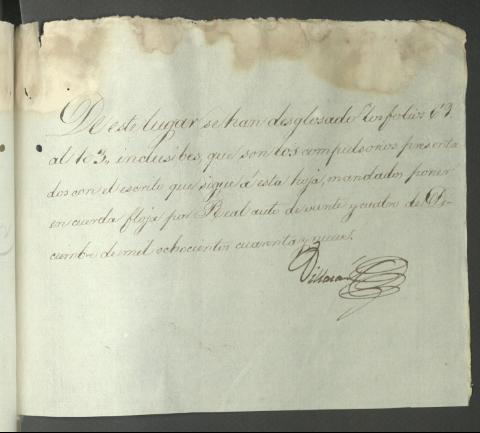 De este lugar se han desglosado los folios 63
al 183, inclusibes, que son los compulsorios presenta-
dos con el escrito que sigue á esta hoja, mandados poner
en cuerda floja por Real auto de veinte y cuatro de Di-
ciembre de mil ochocientos cuarenta y nueve.